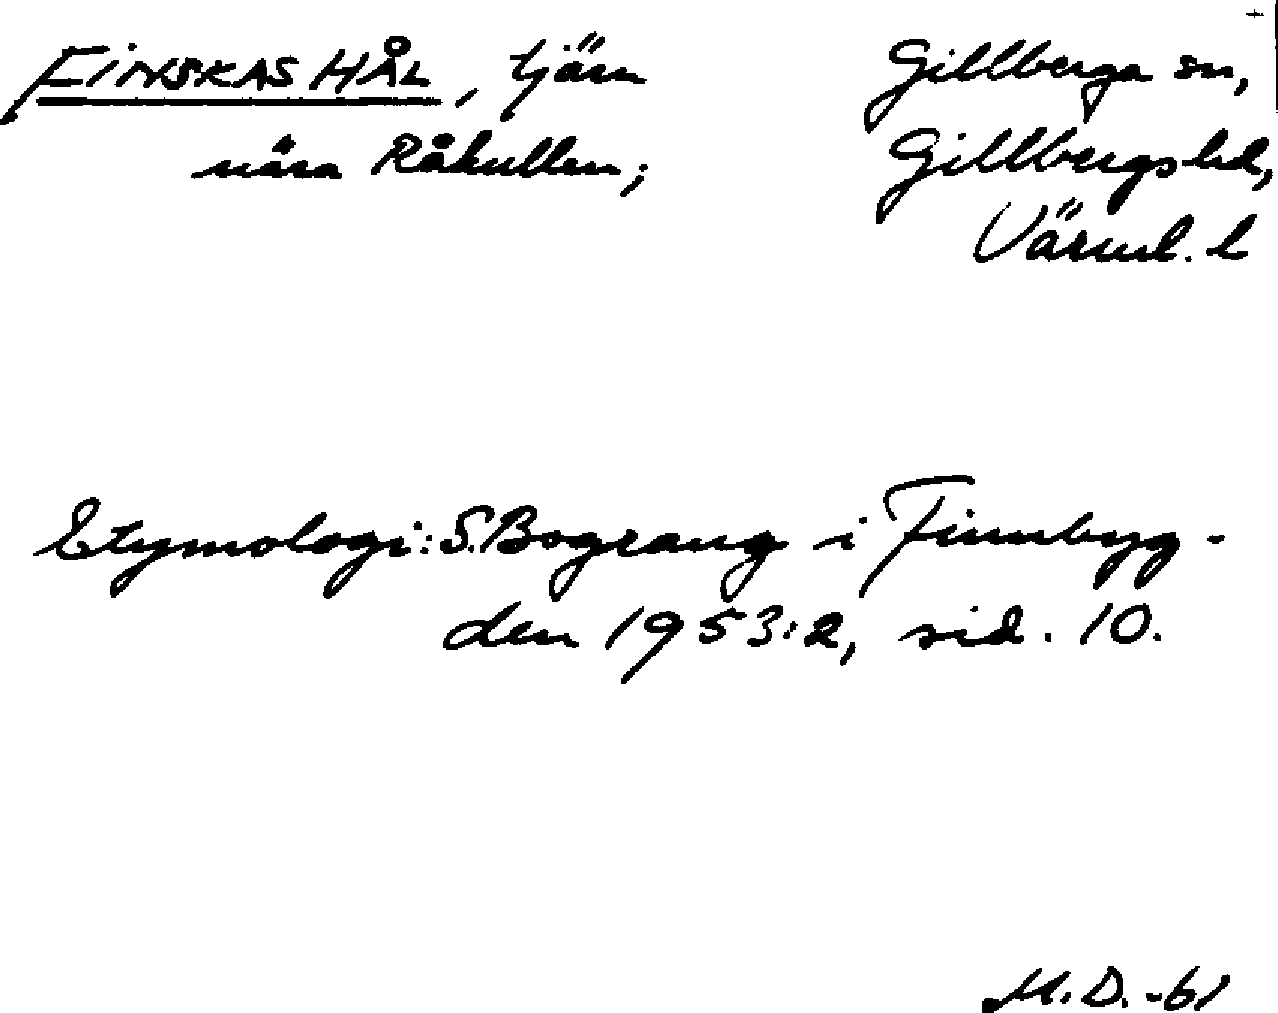 FINSKAS HÅL, tjärn
nära Råkullen;
Gillberga sn,
Gillbergs hd,
Värml. l
Etymologi: S. Bograng i Finnbyg-
den 1953:2, sid. 10.
M.D. -61